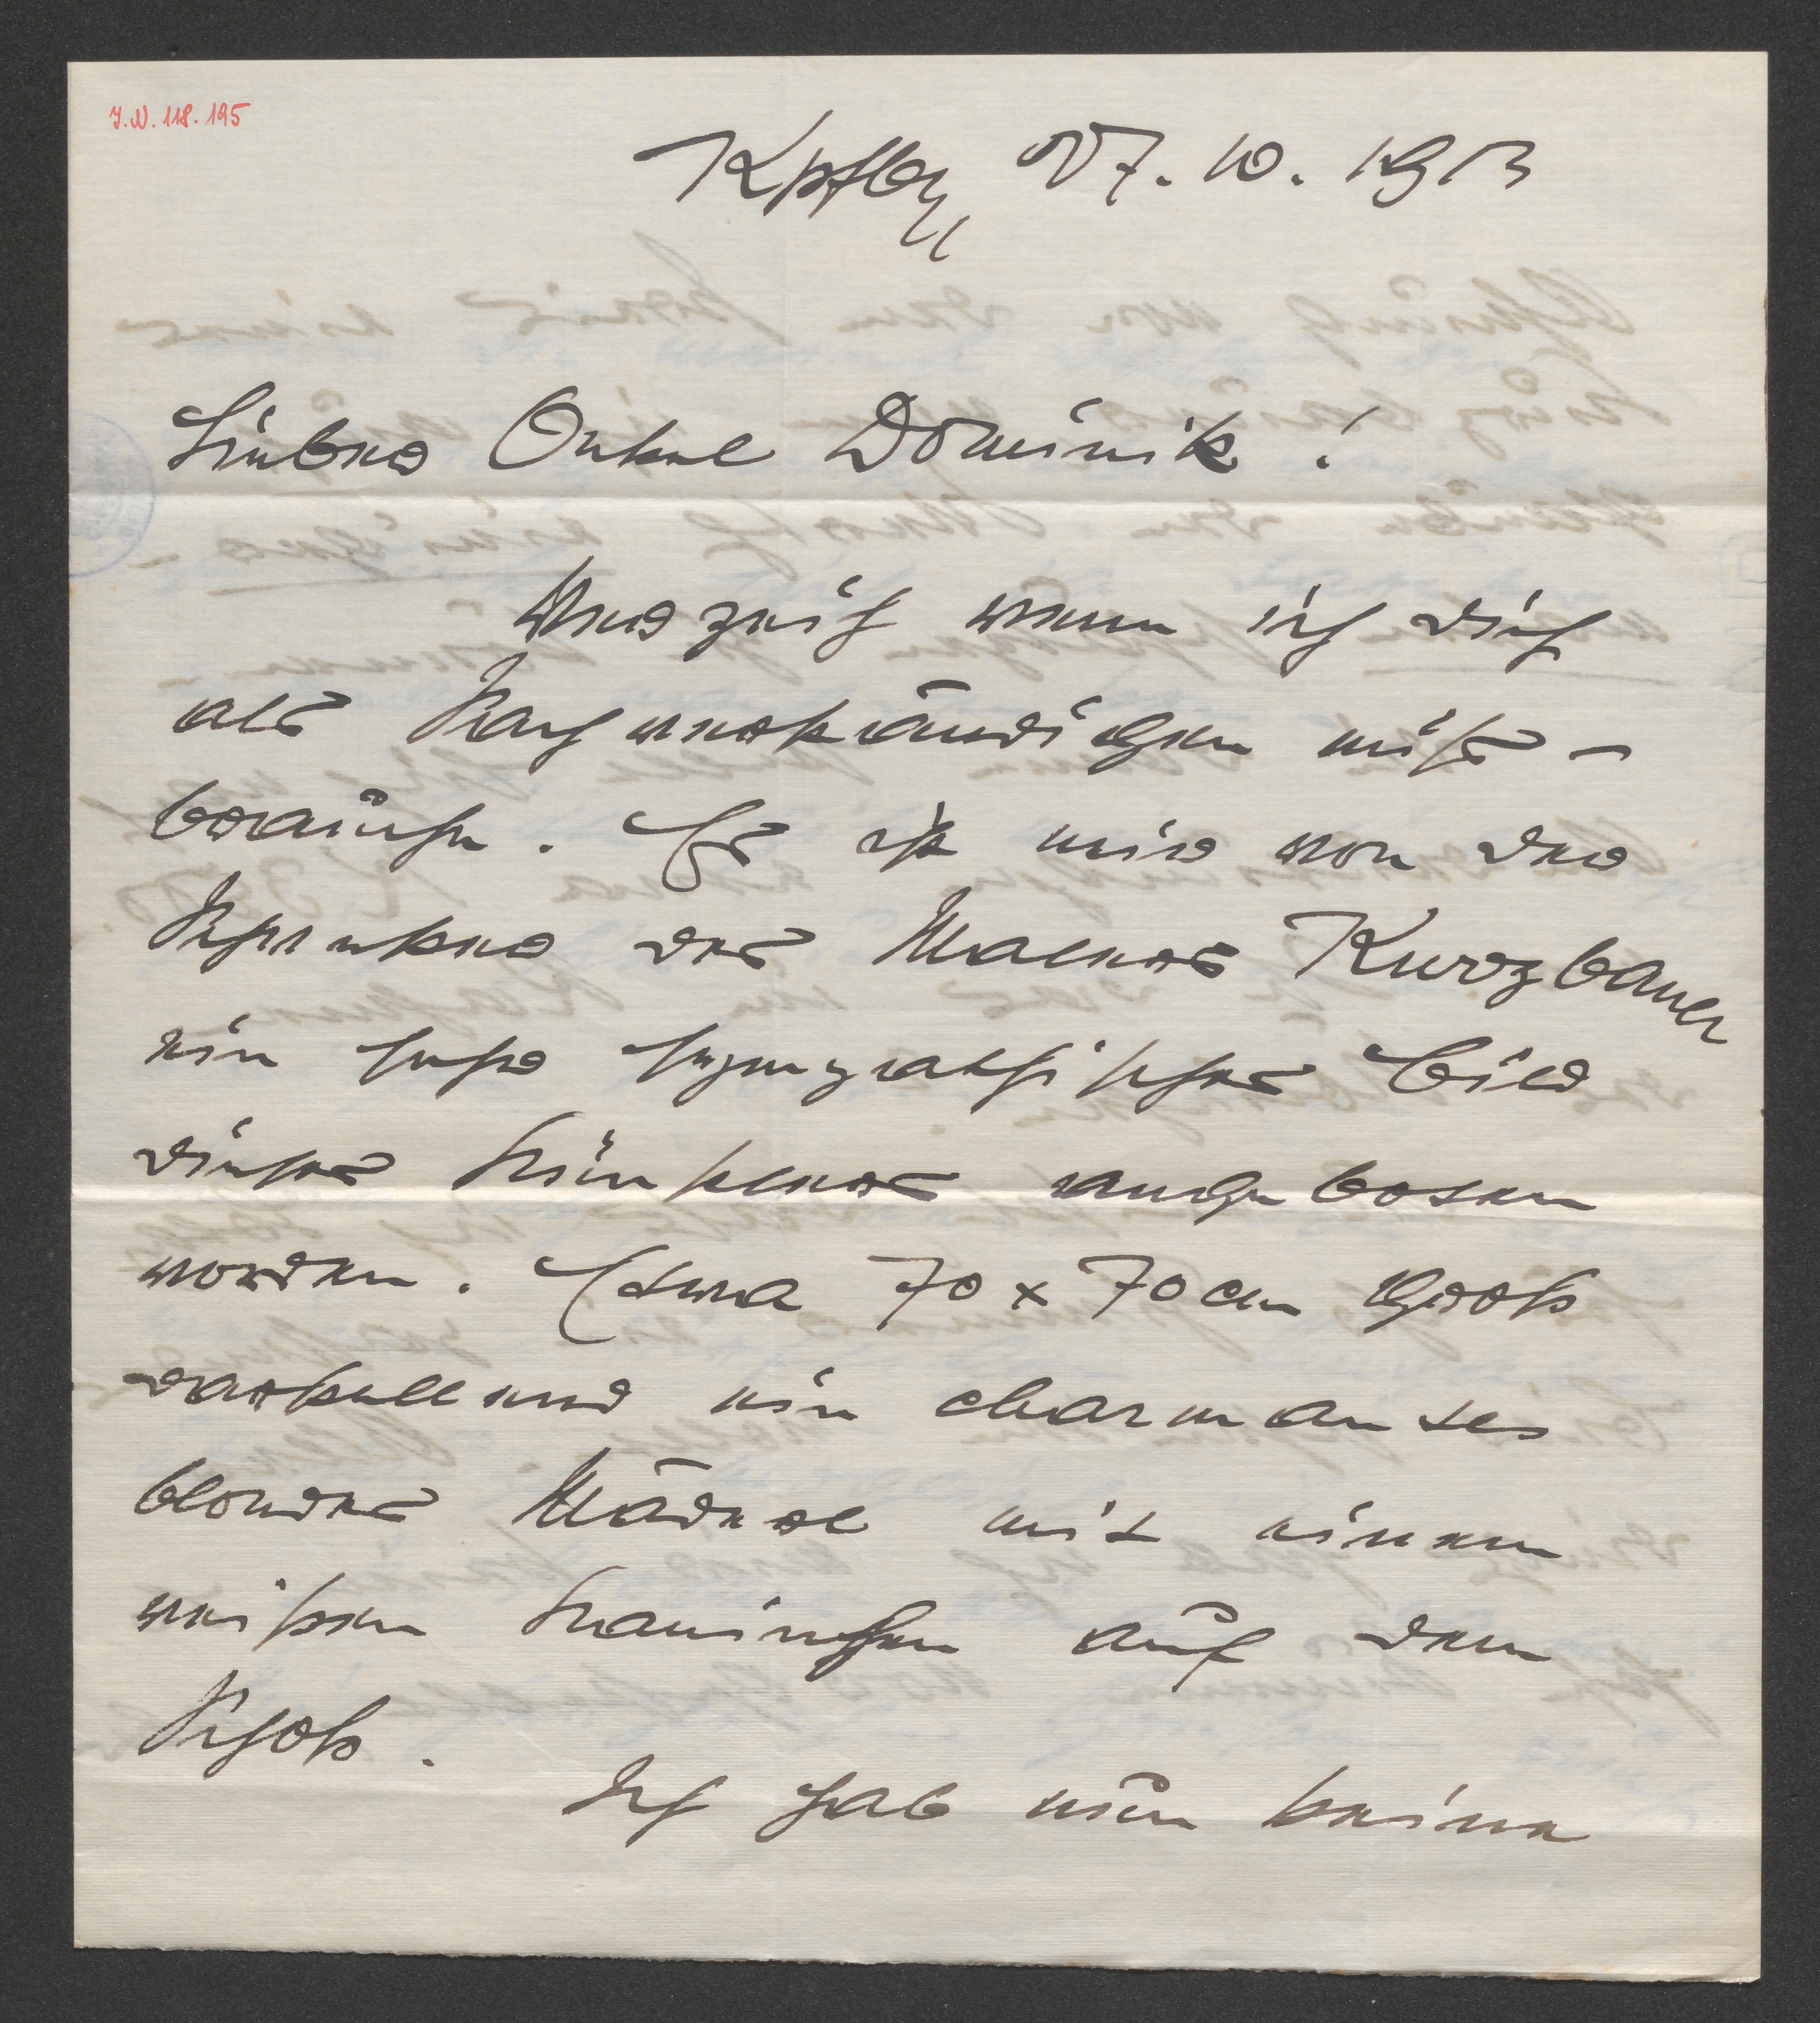 J.N. 118.195
Kpfbg, 27. 10. 1913
Lieber Onkel Dominik!
Verzeih wenn ich dich
als Sachverständigen miß-
brauche. Es ist mir von der
Schwester des Malers Kurzbauer
ein sehr sympathisches Bild
dieses Künstlers angeboten
worden. Etwa 70 x 70 cm groß
darstellend ein charmantes
blondes Mäderl mit einem
weißen Kaninchen auf dem
Schoß.
Ich hab nun keine